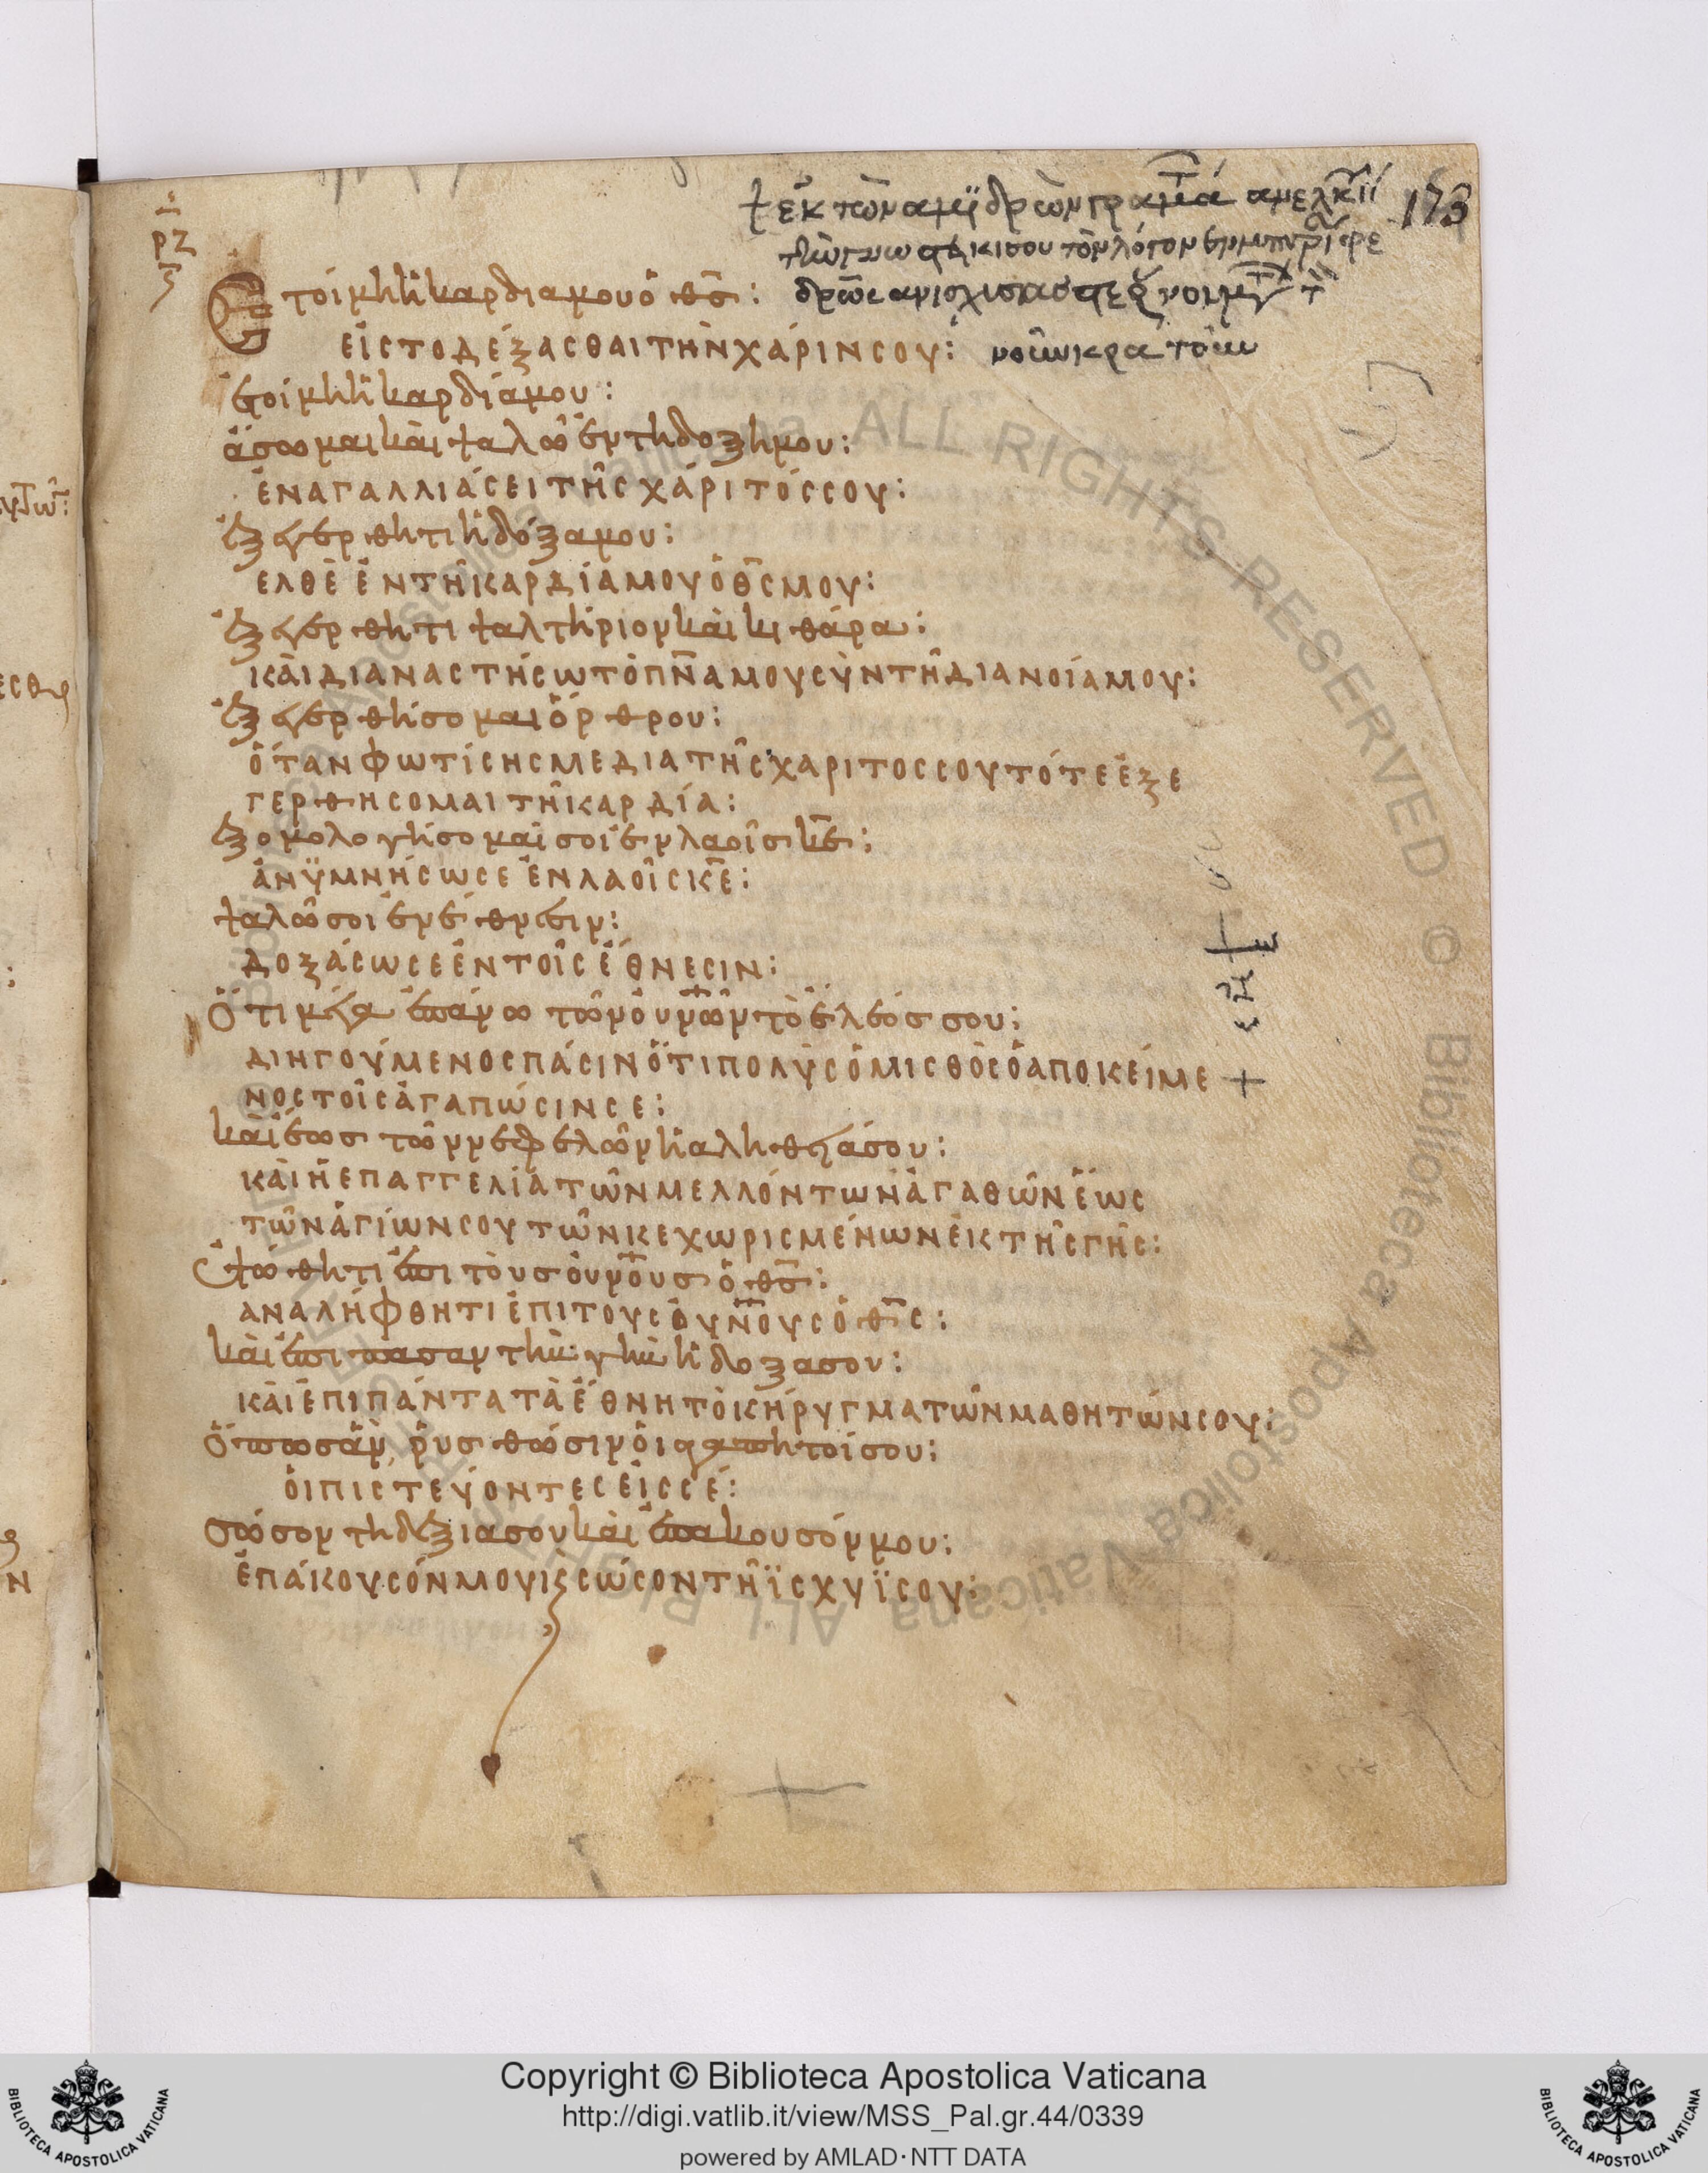 173
ρζ
Ἑτοίμη ἡ καρδία μου ὁ θ̅ς̅:
εἰς το δέξασθαι τὴν χάριν σου:
ἑτοίμη ἡ καρδία μου:
ἄσωμαι καὶ ψαλῶ ἐν τη δοξη μου:
ἐν αγαλλιάσει τῆς χάριτός σου:
Ἐξεγερθητι ἡ δόξα μου:
ελθὲ ἐν τῆ καρδία μου ὁ θ̅ς̅ μου:
Ἐξεγερθητι ψαλτήριον καὶ κιθάρα:
καὶ διαναστήσω τὸ πν̅α μου σὺν τῆ διανοία μου:
Ἐξεγερθήσομαι ὄρθρου:
ὅταν φωτίσης με δια τῆς χαριτος σου τότε ἐξε
γερθησομαι τῆ καρδία:
Ἐξομολογήσομαί σοι ἐν λαοῖς κ̅ε̅:
ἀνϋμνήσω σε ἐν λαοῖς κ̅ε̅:
ψαλῶ σοι ἐν ἔθνεσιν:
δοξάσω σε ἐν τοῖς ἔθνεσιν:
Ὅτι μέγα ἐπάνω τῶν οὐν̅ῶν τὸ ἔλεός σου:
διηγούμενος πάσιν ὅτι πολὺς ὁ μισθὸς ὁ αποκείμε
νος τοῖς ἀγαπώσιν σε:
καὶ ἕως τῶν νεφελῶν ἡ αληθεία σου:
καὶ ἡ επαγγελία τῶν μελλόντων ἀγαθῶν ἕως
τῶν ἁγίων σου τῶν κεχωρισμένων ἐκ τῆς γῆς:
Ὑψώθητι ἐπι τοὺς οὐν̅οὺς ὁ θ̅ς̅:
αναλήφθητι ἐπι τους οὐν̅ους ὁ θ̅ς̅:
καὶ ἐπι πασαν τὴν γὴν ἡ δοξα σου:
καὶ ἐπι πάντα τὰ ἔθνη τὸ κήρυγμα τῶν μαθητών σου:
Ὅπως ἂν ῥυσθώσιν ὁι αγαπητοί σου:
ὁι πιστεύοντες εἰς σέ:
σώσον τη δεξια σου καὶ ἐπακουσόν μου:
ἐπάκουσόν μου κ̀ σώσον τῆ ϊσχυϊ σου:
Copyright © Biblioteca Apostolica Vaticana
http://digi.vatlib.it/view/MSS_Pal.gr.44/0339
powered by AMLAD·NTT DATA